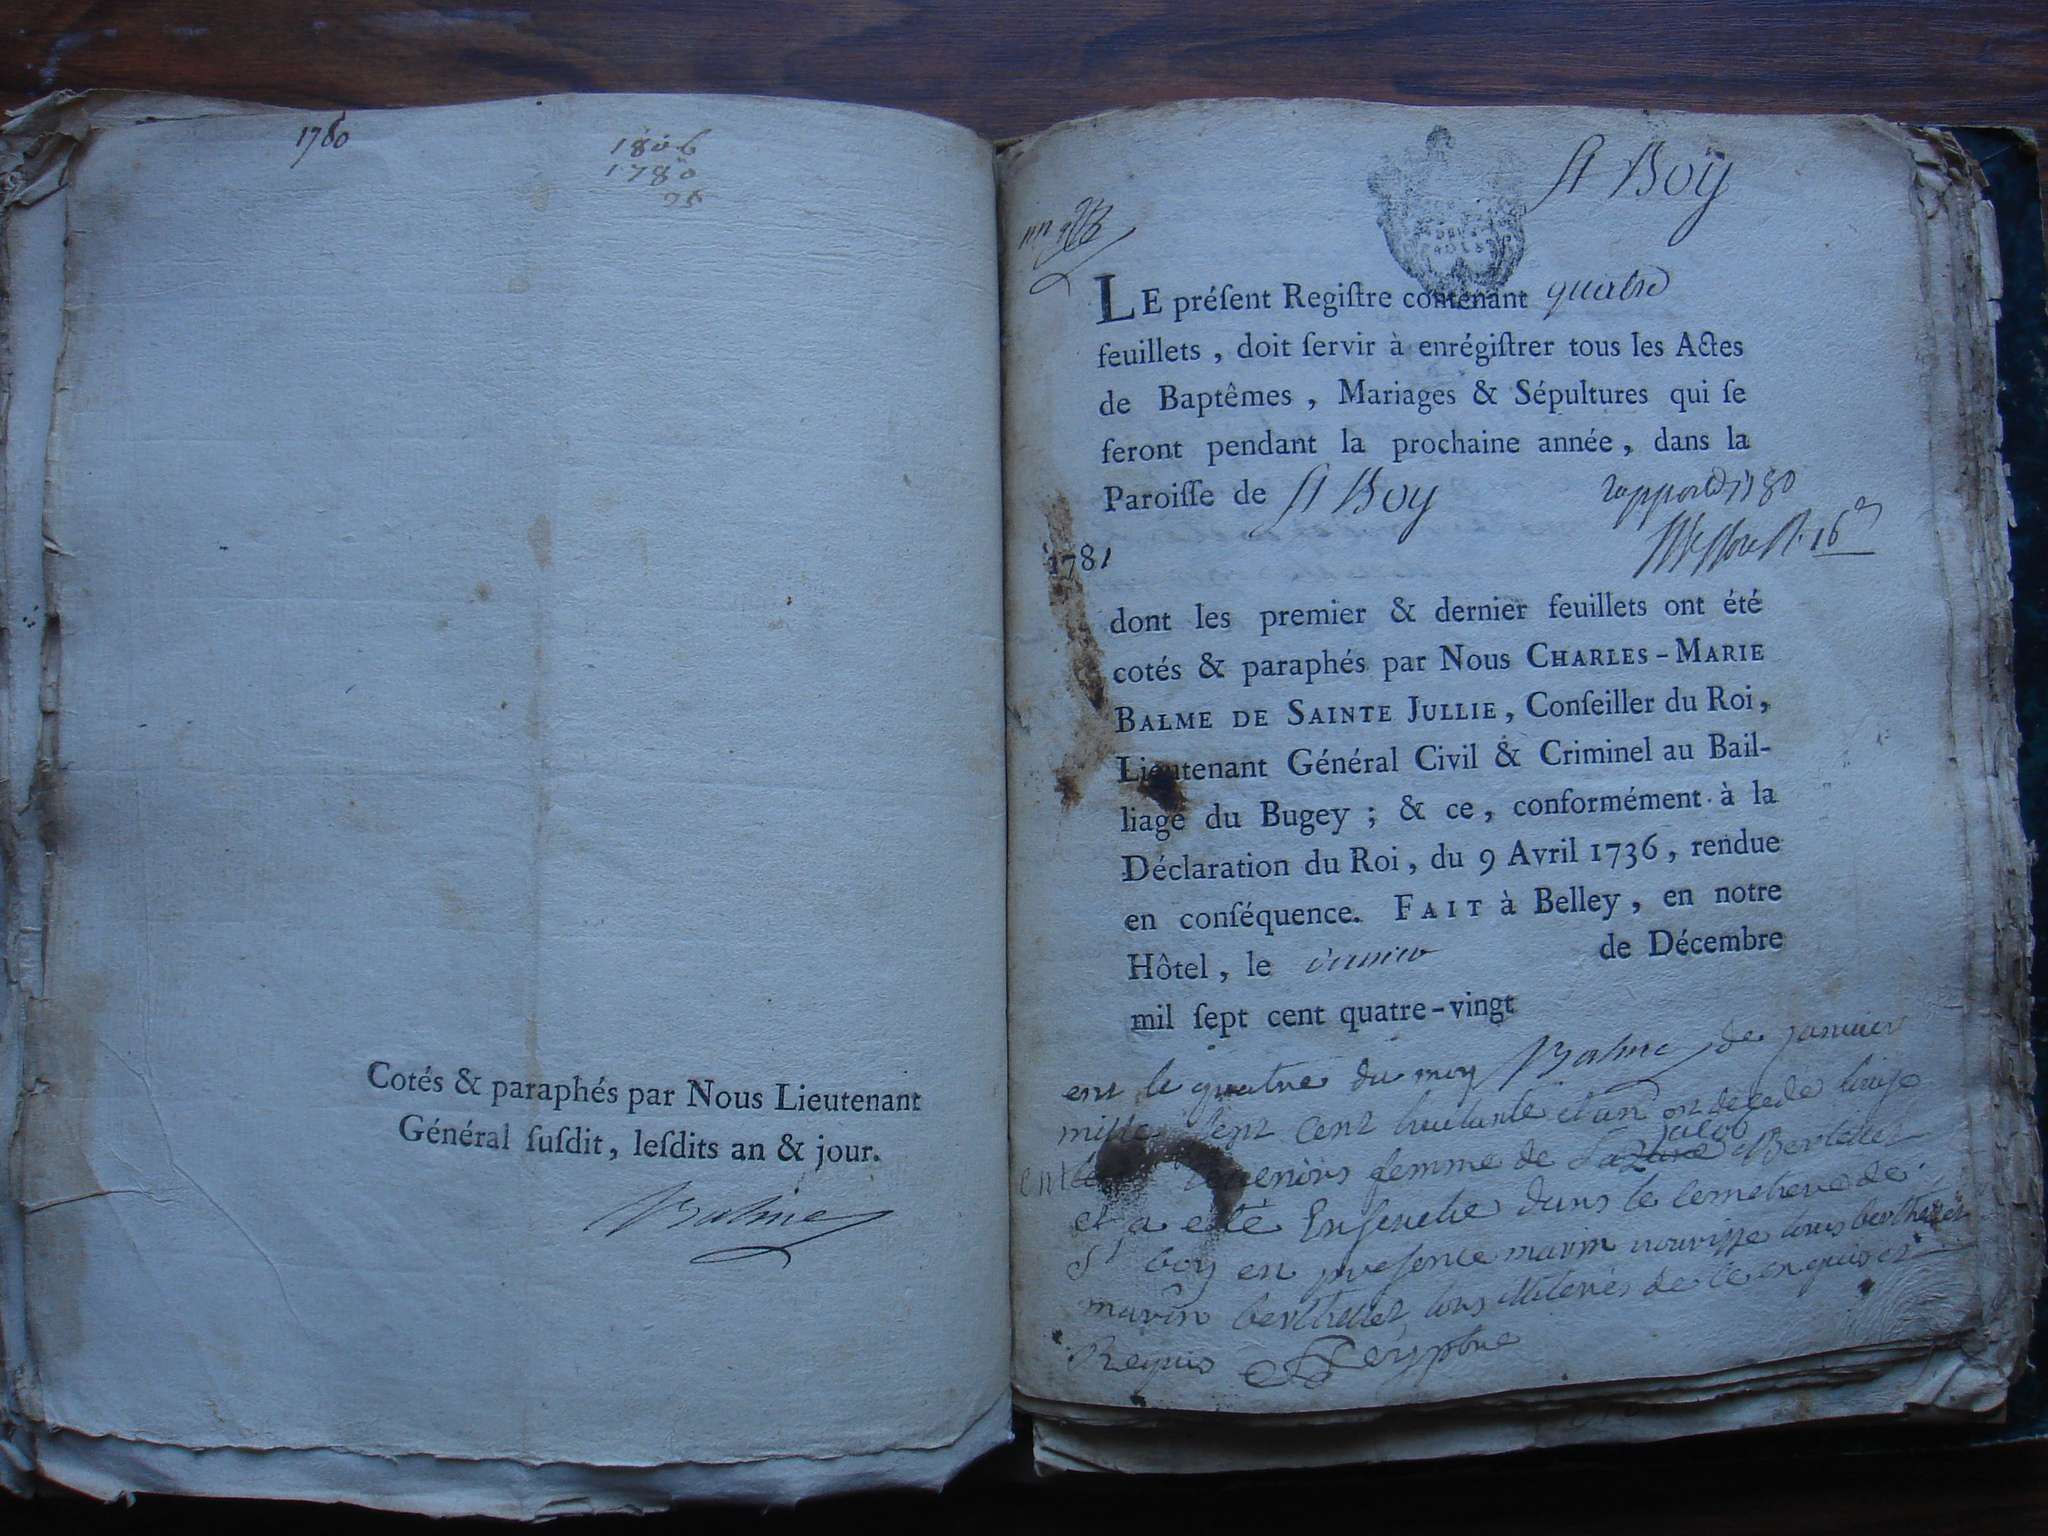 1780
1806
1780
26
Cotés & paraphés par Nous Lieutenant
Général ſuſdit, leſdits an & jour.
Balme
St Boÿ
LE préſent Regiſtre contenant quatre
feuillets, doit ſervir à enrégiſtrer tous les Actes
de Baptêmes, Mariages & Sépultures qui ſe
feront pendant la prochaine année, dans la
Paroiſſe de St Boy
1781
dont les premier & dernier feuillets ont été
cotés & paraphés par Nous CHARLES-MARIE
BALME DE SAINTE JULLIE, Conſeiller du Roi,
Lieutenant Général Civil & Criminel au Bail-
liage du Bugey ; & ce, conformément à la
Déclaration du Roi, du 9 Avril 1736, rendue
en conſéquence. FAIT à Belley, en notre
Hôtel, le de Décembre
mil ſept cent quatre-vingt
Balme
le quatre du moy de janvier
mille sept cent huitante et un on decede
femme de Jacob Berthet
et a esté Enseuelie dans le cemetiere de
St boy en presence marin nourisse louis berthet
marin berthet tous de ce enquis et
Requis